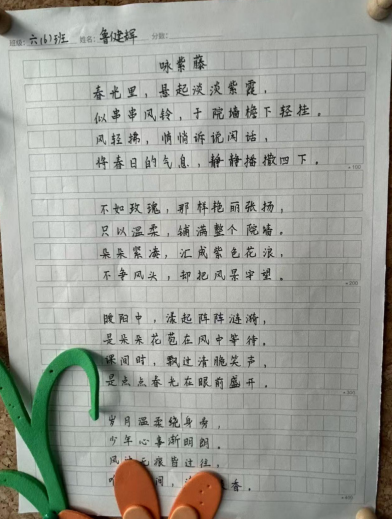 班级：六(6)班 姓名：鲁健辉 分数：
咏紫藤
春光里，悬起淡淡紫霞，
似串串风铃，于院墙檐下轻挂。
风轻拂，悄悄诉说闲话，
将春日的气息，静静播撒四下。
+100
不如玫瑰，那样艳丽张扬，
只以温柔，铺满整个院墙。
朵朵紧凑，汇成紫色花浪，
不争风头，却把风景守望。
+200
暖阳中，漾起阵阵涟漪，
是朵朵花苞在风中等待，
课间时，飘过清脆笑声，
是点点春光在眼前盛开。
+300
岁月温柔绕身旁，
少年心事渐明朗。
风过无痕皆过往，
间，香。